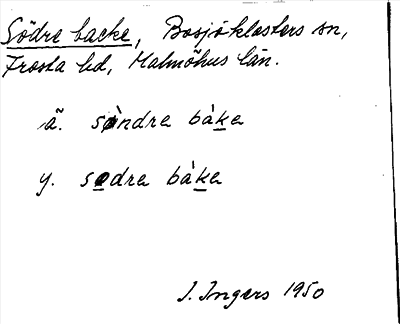 Södre backe, Bosjöklosters sn,
Frosta hd, Malmöhus län.
ä. søndre bàke
y. sødre bàke
I. Ingers 1950